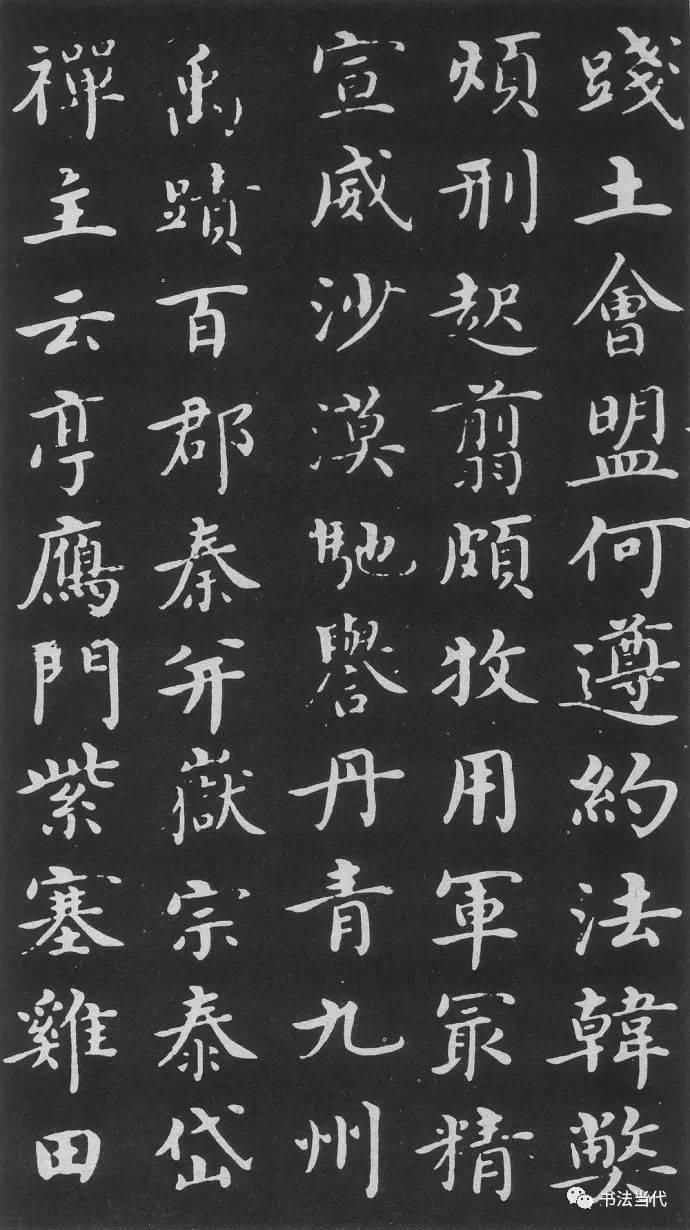 踐土會盟何遵約法韓弊
煩刑起翦頗牧用軍冣精
宣威沙漠馳譽丹青九州
禹蹟百郡秦并嶽宗泰岱
禪主云亭鴈門紫塞雞田
书法当代